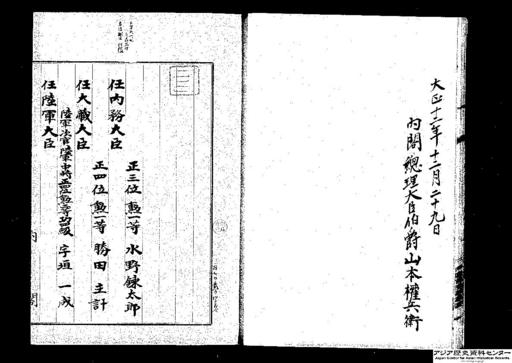 大正十二年十二月二十九日
内閣總理大臣伯爵山本權兵衛
任内務大臣
正三位勲一等水野錬太郎
任大藏大臣
正四位勲一等勝田主計
任陸軍大臣
宇垣一成
内閣
アジア歴史資料センター
Japan Center for Asian Historical Records